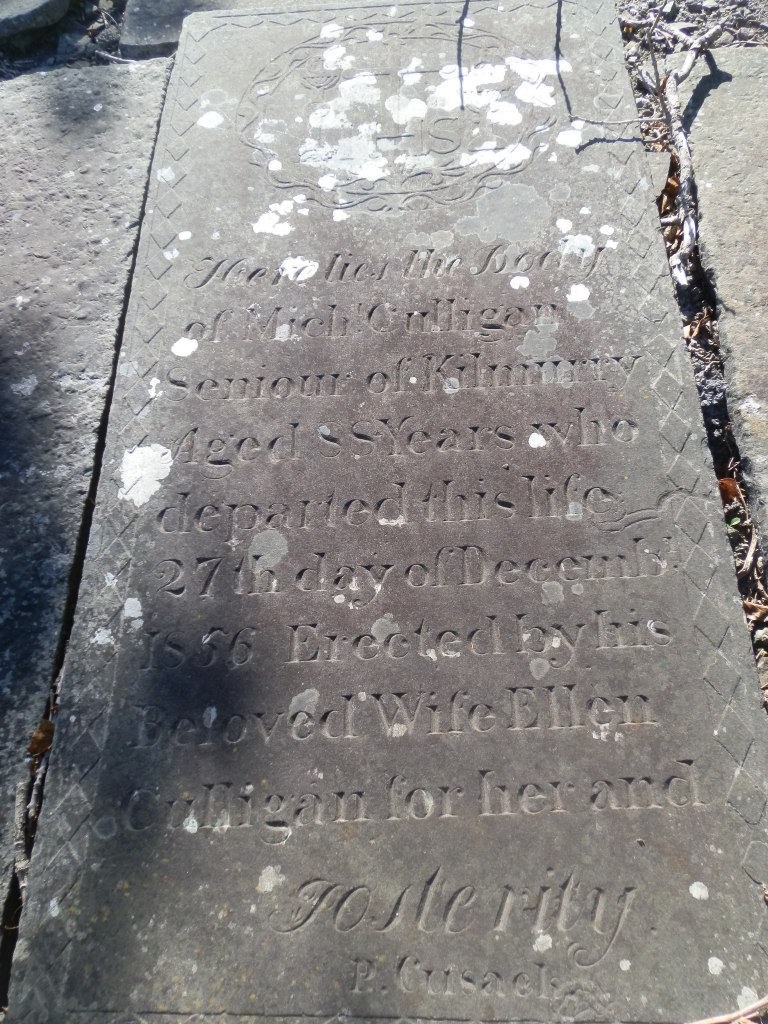 IHS
Here lies the Body
of Mich.l Culligan
Seniour of Kilmurry
Aged 88 Years who
departed this life
27th day of Decemb.r
1856 Erected by his
Beloved Wife Ellen
Culligan for her and
Posterity
P. Cusack